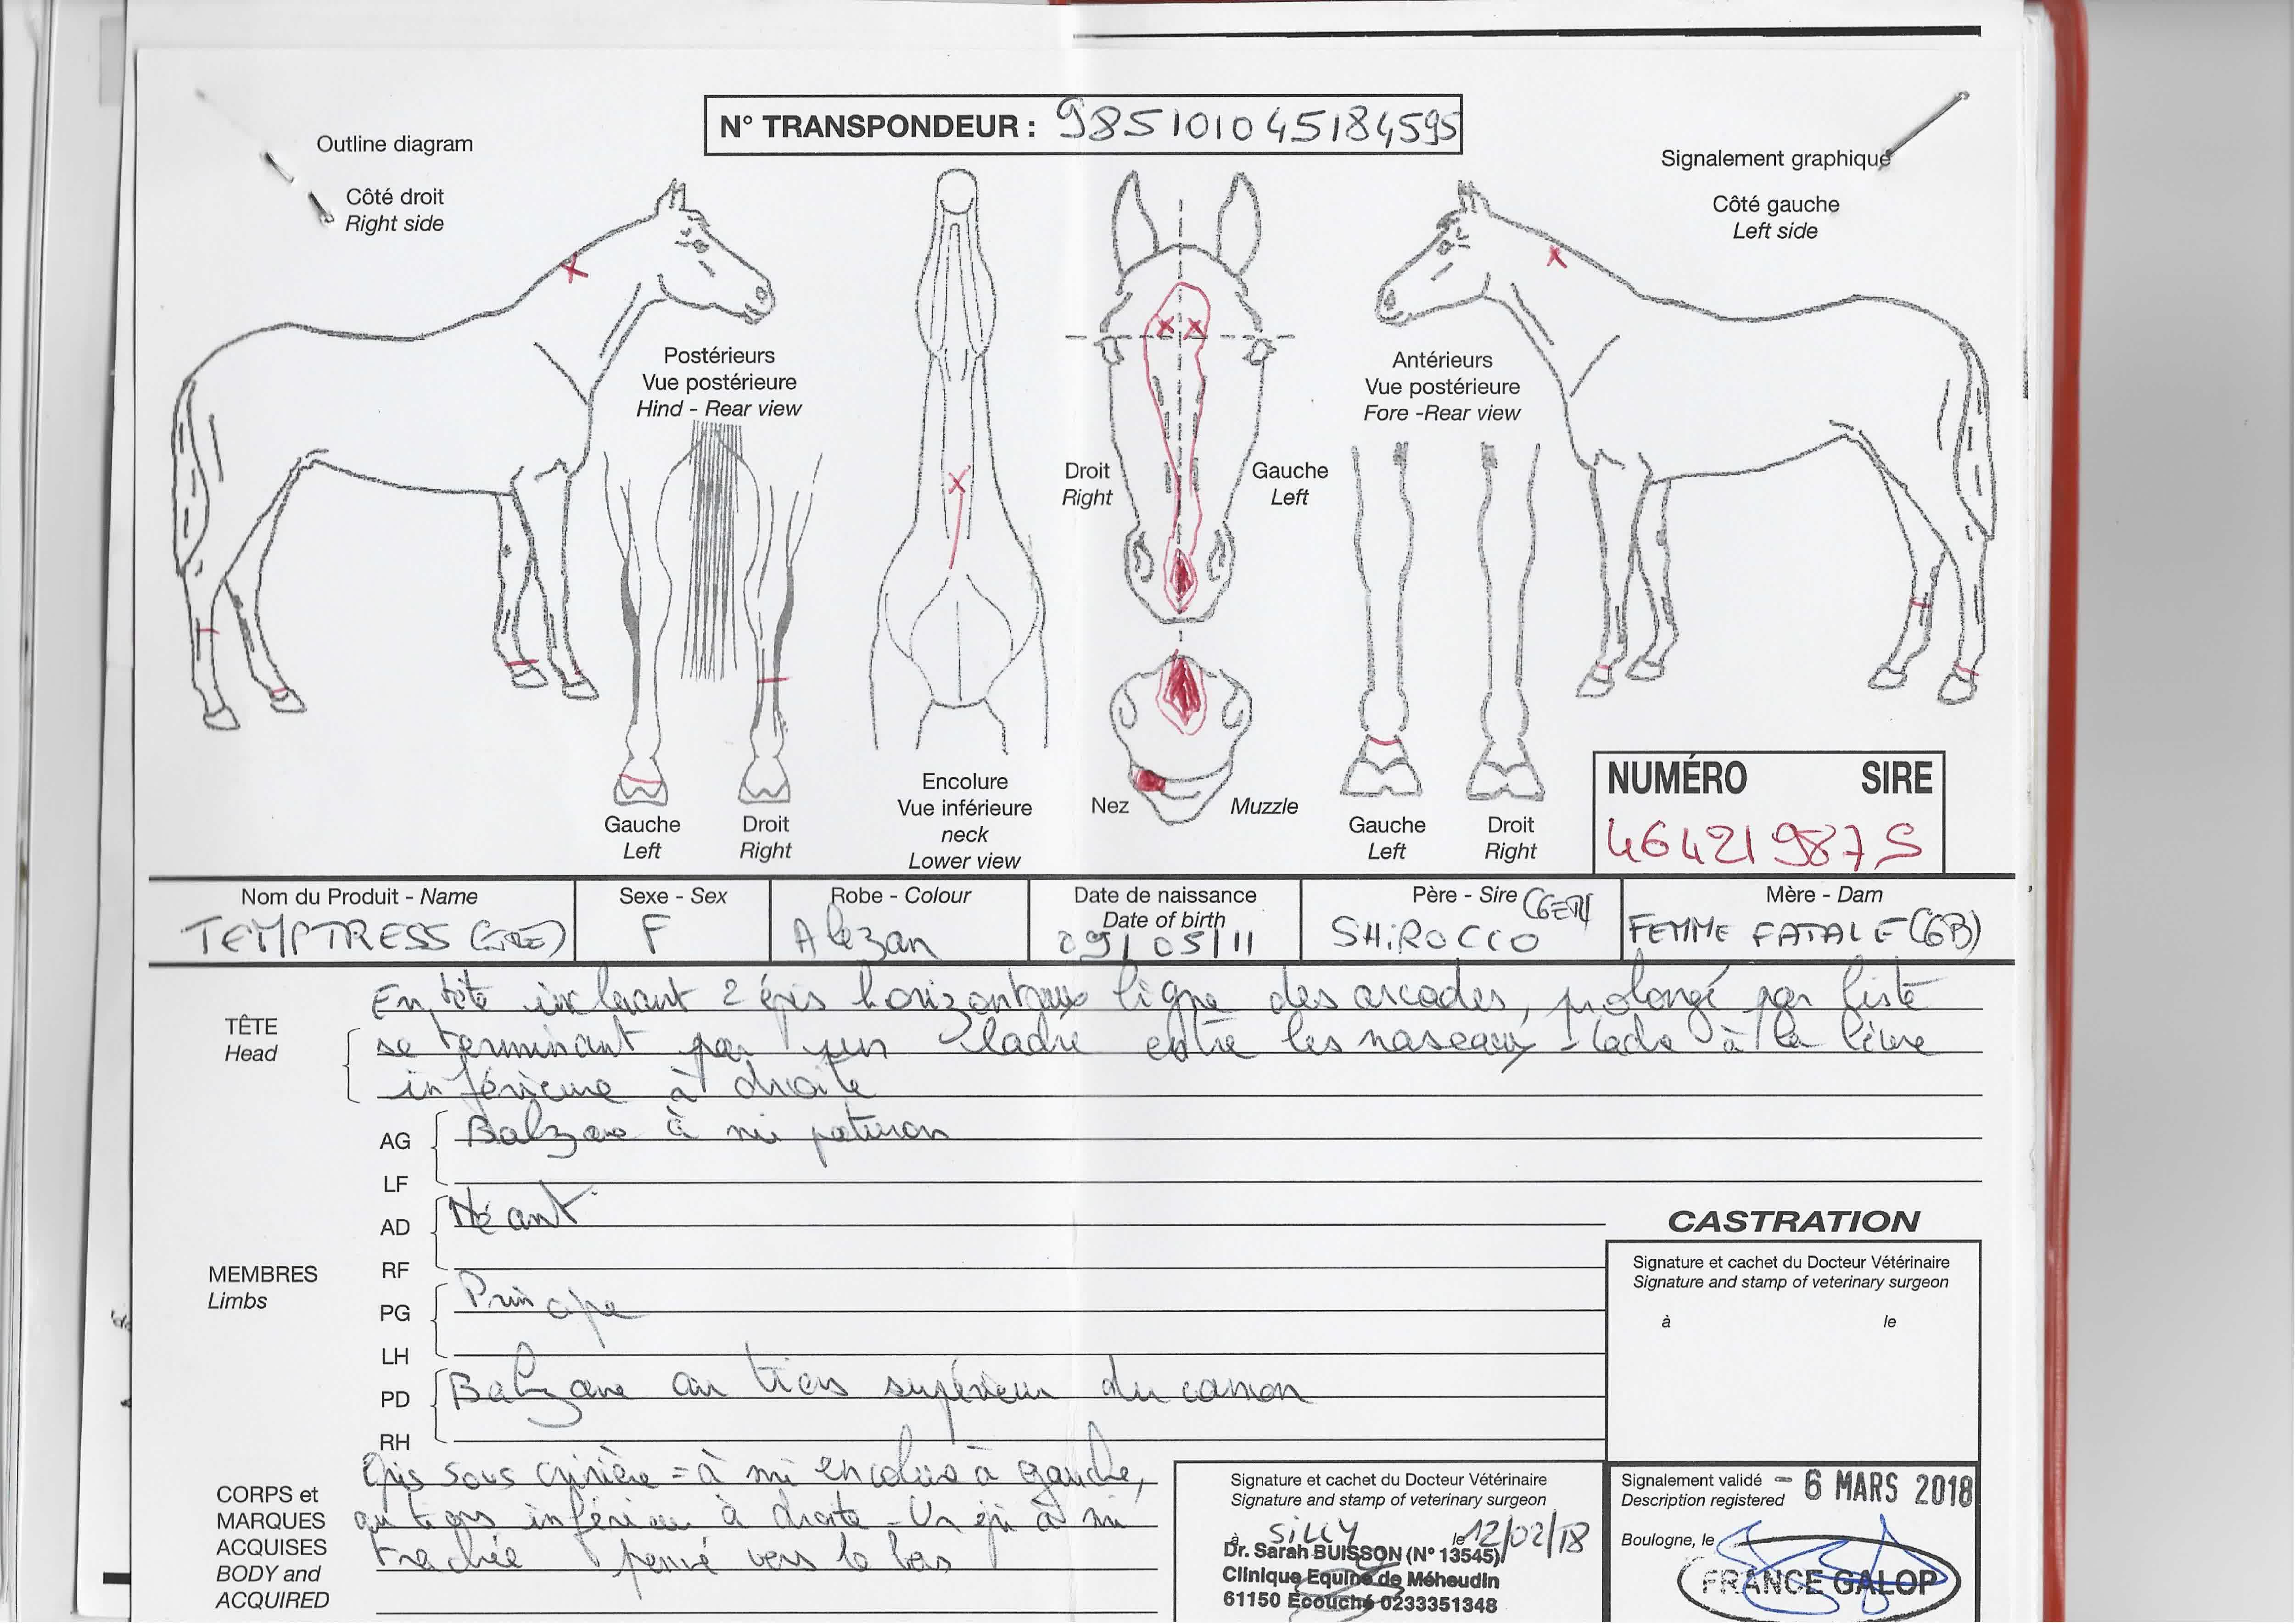 N° TRANSPONDEUR : 985101045184595
Outline diagram
Côté droit
Right side
Signalement graphique
Côté gauche
Left side
Postérieurs
Vue postérieure
Hind - Rear view
Antérieurs
Vue postérieure
Fore -Rear view
Droit
Right
Gauche
Left
Gauche
Left
Droit
Right
Encolure
Vue inférieure
neck
Lower view
Nez
Muzzle
Gauche
Left
Droit
Right
NUMÉRO SIRE
46421987S
Nom du Produit - Name
TEMPTRESS (IRE)
Sexe - Sex
F
Robe - Colour
Alezan
Date de naissance
Date of birth
09/05/11
Père - Sire (GER)
SHIROCCO
Mère - Dam
FEMME FATALE (GB)
TÊTE
Head
En tête incluant 2 épis horizontaux ligne des arcades, prolongé par liste
se terminant par un ladre entre les naseaux - ladre à la lèvre
inférieure à droite
MEMBRES
Limbs
AG
LF
Balzane à mi paturon
AD
RF
Néant
PG
LH
Principe
PD
RH
Balzane au tiers supérieur du canon
CORPS et
MARQUES
ACQUISES
BODY and
ACQUIRED
Epis sous crinière = à mi encolure à gauche,
au tiers inférieur à droite - Un épi à mi
trachée penné vers le bas
CASTRATION
Signature et cachet du Docteur Vétérinaire
Signature and stamp of veterinary surgeon
à le
Signature et cachet du Docteur Vétérinaire
Signature and stamp of veterinary surgeon
à SILLY le 12/02/18
Dr. Sarah BUISSON (N° 13545)
Clinique Equine de Méheudin
61150 Ecouché 0233351348
Signalement validé
Description registered
- 6 MARS 2018
Boulogne, le
FRANCE GALOP